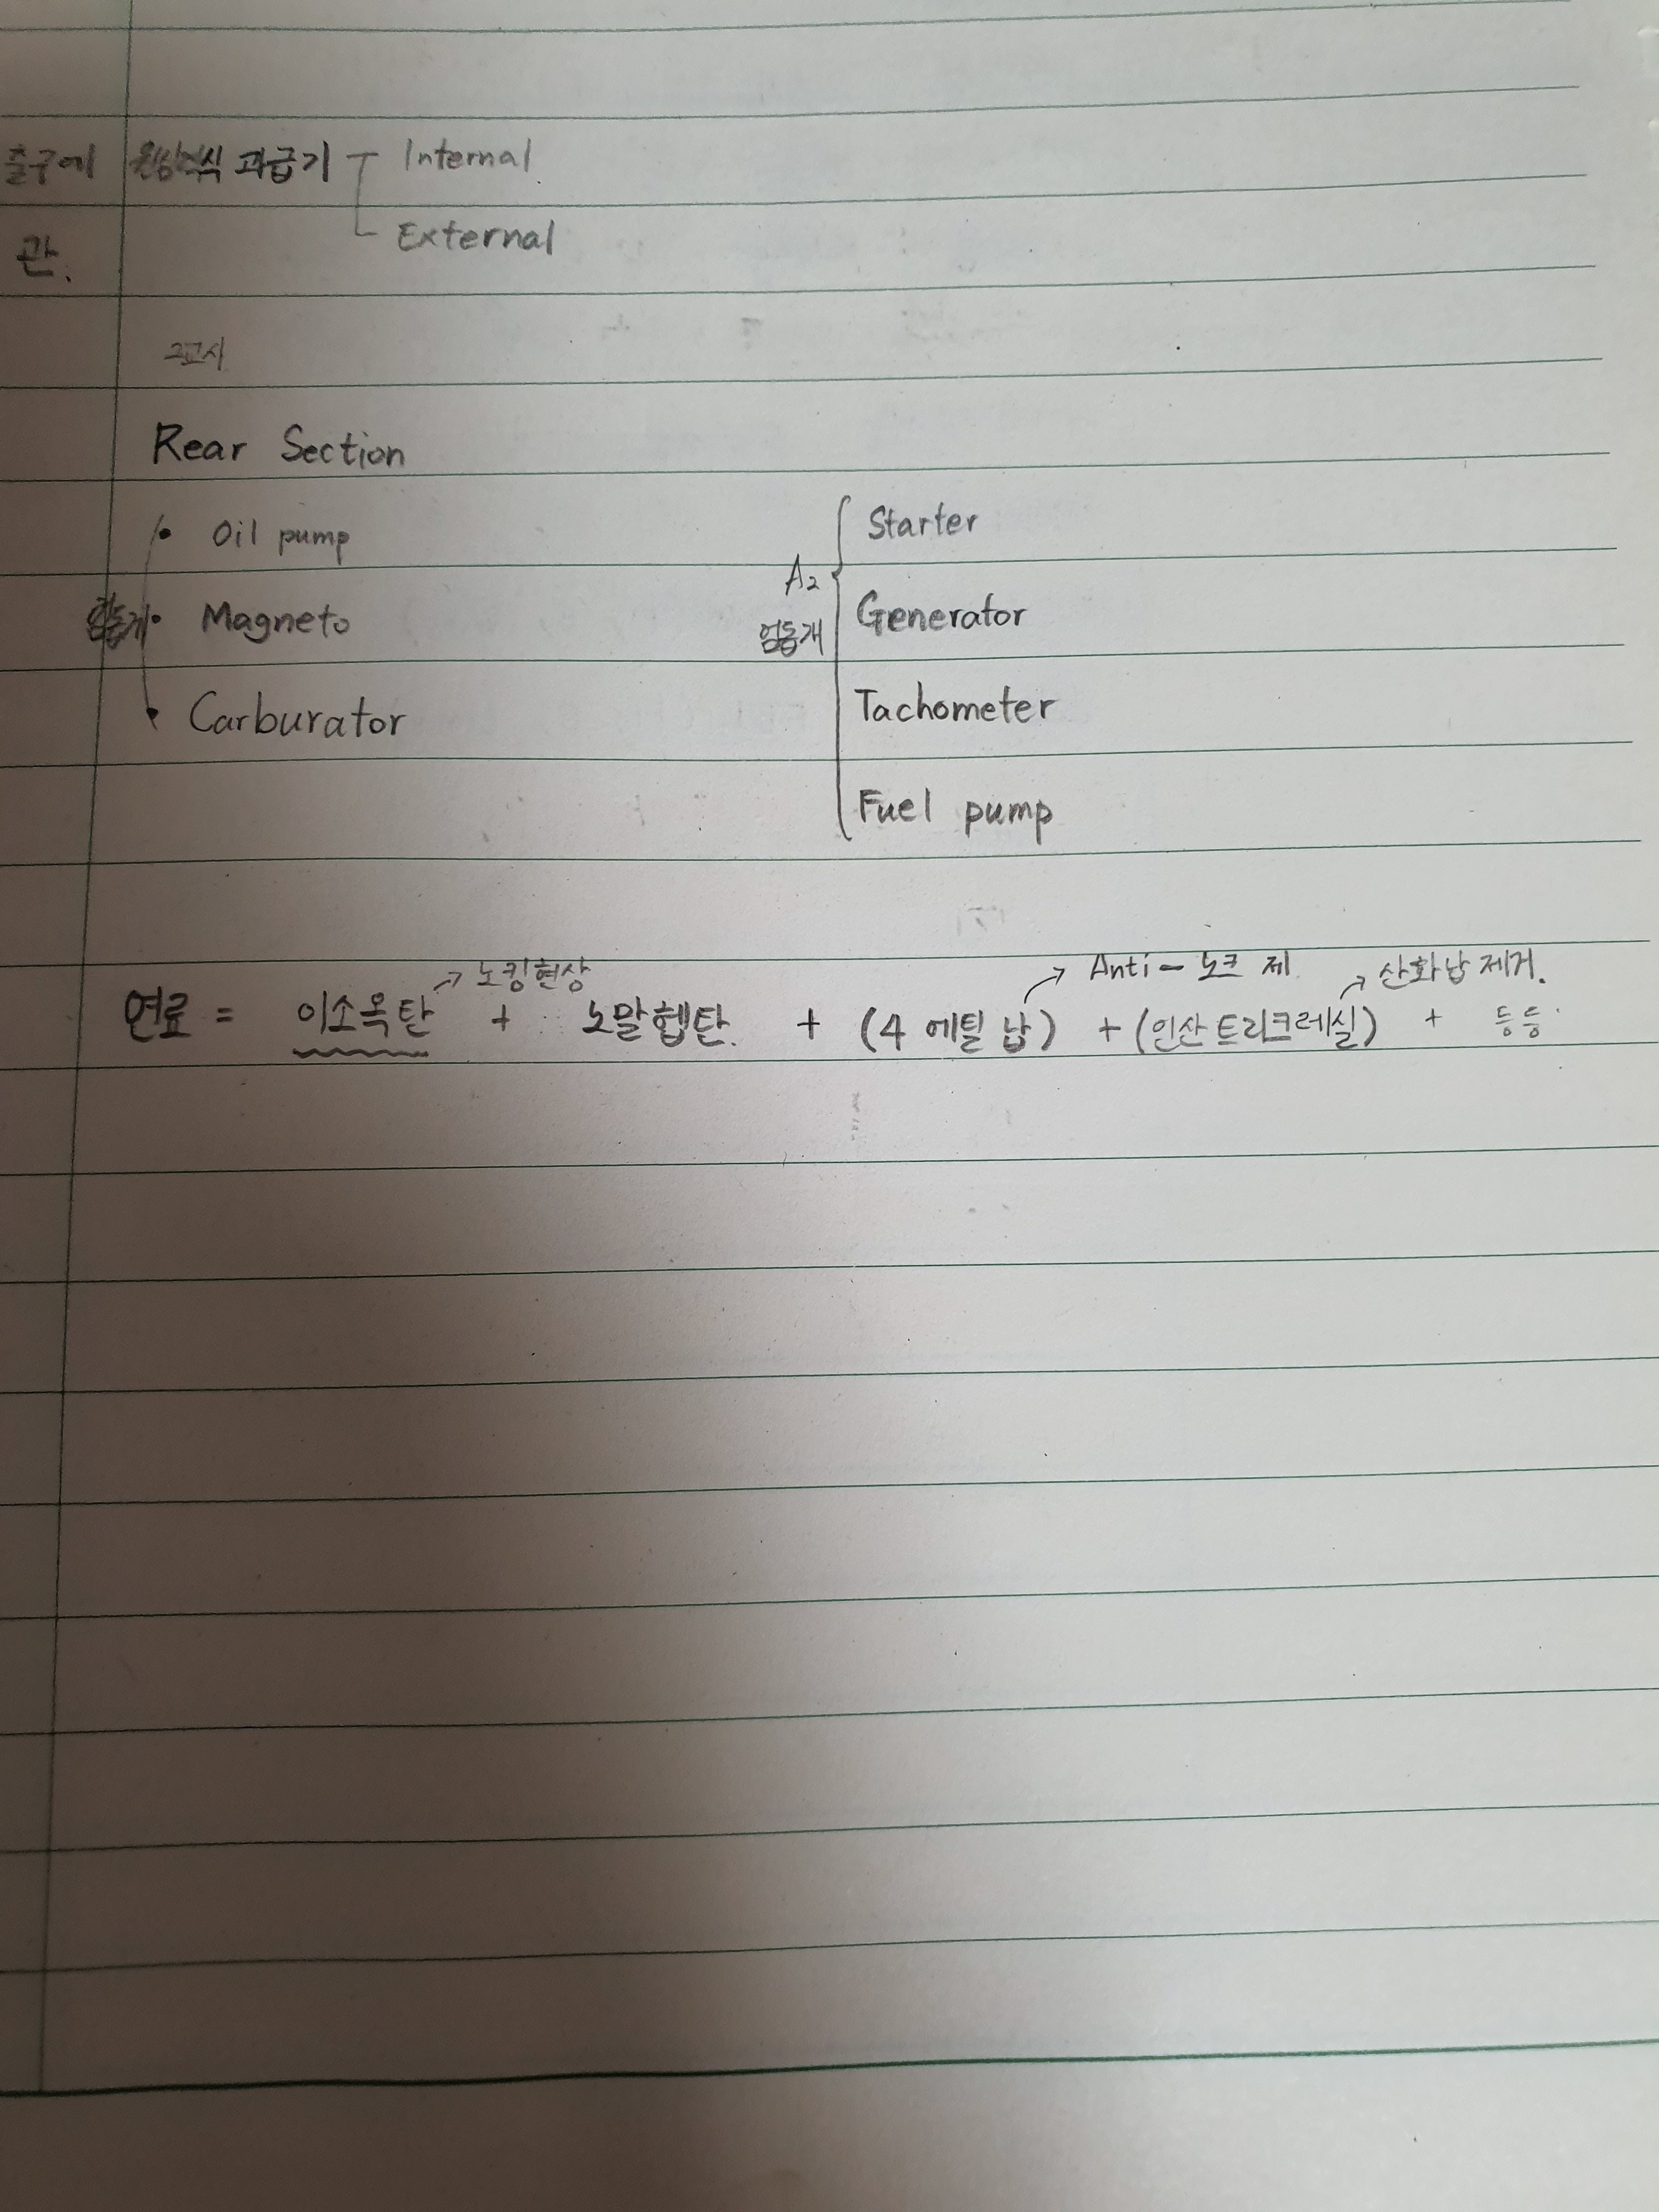 출구에 원심식 과급기 Internal
관. External
Rear Section
• Oil pump
• Magneto
• Carburator
A2
엄동개
Starter
Generator
Tachometer
Fuel pump
노킹현상 Anti-노크 제 산화납 제거.
연료 = 이소옥탄 + 노말헵탄. + (4 에틸 납) + (인산 트리크레실) + 등등